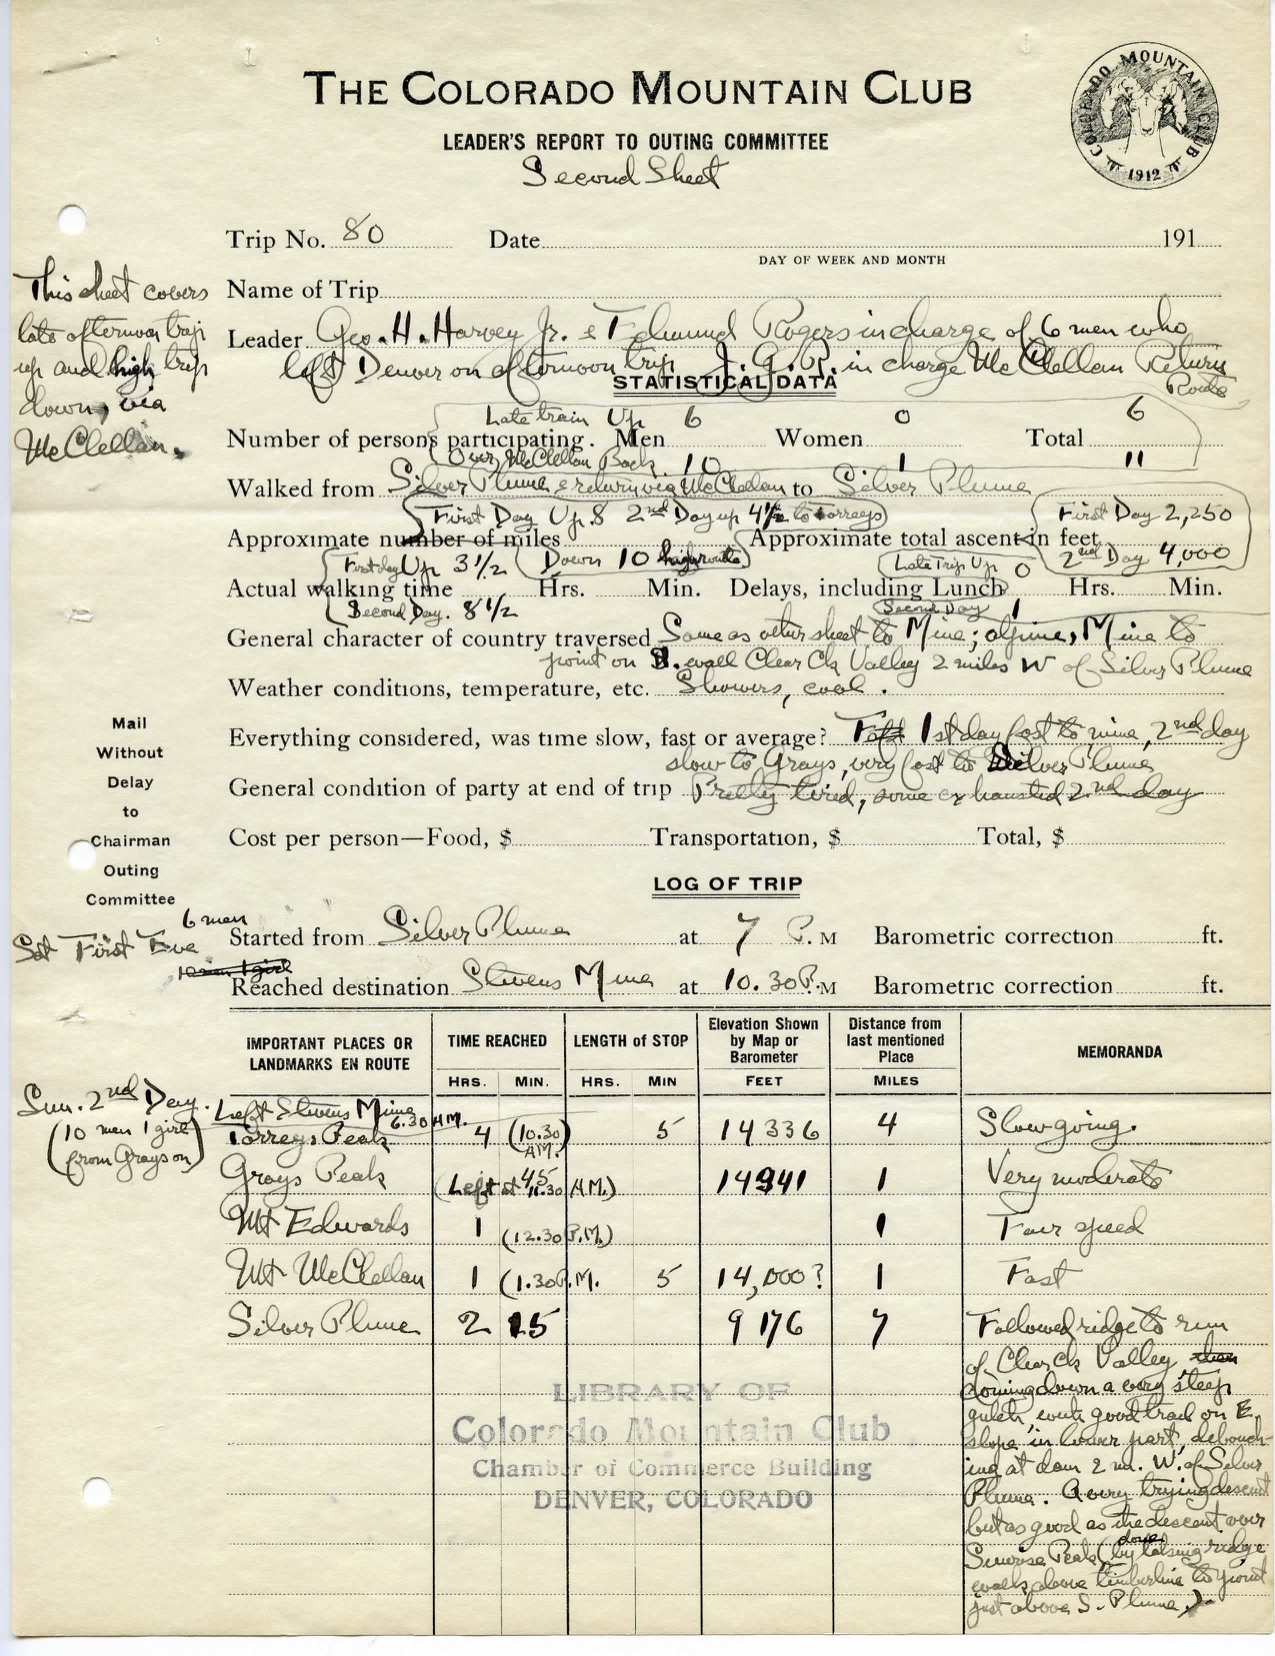 THE COLORADO MOUNTAIN CLUB
COLORADO MOUNTAIN CLUB
1912
LEADER'S REPORT TO OUTING COMMITTEE
Second Sheet
Trip No. 80 Date 191
DAY OF WEEK AND MONTH
This sheet covers
late afternoon trip
up and high trip
down, via
McClellan.
Name of Trip
Leader Geo. H. Harvey Jr. & Edmund Rogers in charge of 6 men who
left Denver on afternoon trip J. G. R. in charge McClellan Return
Route
STATISTICAL DATA
Late train Up 6 0 6
Number of persons participating. Men Women Total
Over McClellan Back. 10 1 11
Walked from Silver Plume & return via McClellan to Silver Plume
First Day Up 8 2nd Day up 4½ to Torreys First Day 2,250
Approximate number of miles Approximate total ascent in feet
Down 10 high route 2nd Day 4,000
First day Up 3½ Late Trip Up 0
Actual walking time Hrs. Min. Delays, including Lunch Hrs. Min.
Second Day. 8½ Second Day 1
General character of country traversed Same as other sheet to Mine; alpine, Mine to
point on S. wall Clear Ck Valley 2 miles W of Silver Plume
Weather conditions, temperature, etc. Showers, cool.
Everything considered, was time slow, fast or average? Fast 1st day fast to mine, 2nd day
slow to Grays, very fast to Silver Plume
General condition of party at end of trip Pretty tired, some exhausted 2nd day
Cost per person—Food, $ Transportation, $ Total, $
Mail
Without
Delay
to
Chairman
Outing
Committee
LOG OF TRIP
6 men
Sat First Eve
10 men 1 girl
Started from Silver Plume at 7 P.M Barometric correction ft.
Reached destination Stevens Mine at 10.30 P.M Barometric correction ft.
IMPORTANT PLACES OR LANDMARKS EN ROUTE TIME REACHED LENGTH of STOP Elevation Shown by Map or Barometer Distance from last mentioned Place MEMORANDA
HRS. MIN. HRS. MIN FEET MILES
Sun. 2nd Day.
(10 men 1 girl
from Grays on)
Left Stevens Mine 6.30 A.M.
Torreys Peak 4 (10.30 A.M.) 5 14336 4 Slow going.
Grays Peak 45 (Left at 11.30 A.M.) 14341 1 Very moderate
Mt Edwards 1 (12.30 P.M.) 1 Fair speed
Mt McClellan 1 (1.30 P.M. 5 14,000? 1 Fast
Silver Plume 2 15 9176 7 Followed ridge to rim
of Clear Ck Valley then
coming down a very steep
gulch, with good trail on E.
slope in lower part, debouch-
ing at dam 2 mi. W. of Silver
Plume. A very trying descent
but as good as the descent over
Sunrise Peak (by taking ridge
done
walk above timberline to point
just above S. Plume.)
LIBRARY OF
Colorado Mountain Club
Chamber of Commerce Building
DENVER, COLORADO